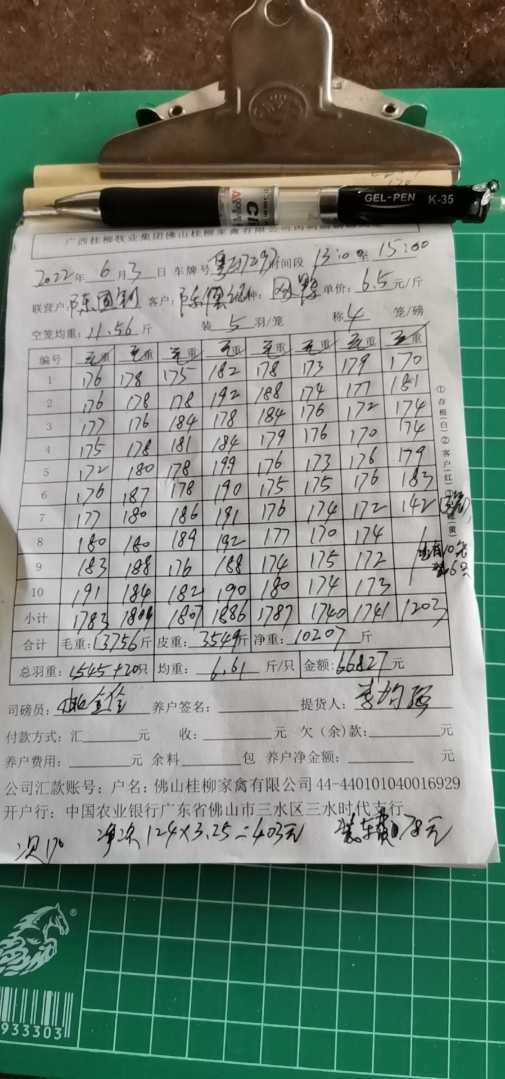 GEL-PEN K-35
广西桂柳牧业集团佛山桂柳家禽有限公司
2022年 6月3日 车牌号 时间段 13:00至15:00
联营户: 客户: 单价: 6.5元/斤
空笼均重: 11.56斤 装 5 羽/笼 称 4 笼/磅
编号 毛重 毛重 毛重 毛重 毛重 毛重 毛重 毛重
1 176 178 175 182 178 173 179 170
2 176 178 178 192 188 174 177 181
3 177 176 184 178 184 176 172 174
4 175 178 181 184 179 176 170 174
5 172 180 178 199 176 173 176 179
6 176 187 178 190 175 175 176 183
7 177 180 186 191 176 174 172 142
8 180 180 189 192 177 170 174
9 183 188 176 188 174 175 172
10 191 184 182 190 180 174 173
小计 1783 1809 1807 1886 1787 1740 1741 1203
合计 毛重: 13756斤 皮重: 3549斤 净重: 10207 斤
总羽重: 1545+20只 均重: 6.61 斤/只 金额: 66827元
司磅员: 养户签名: 提货人:
付款方式: 汇 元 收: 元 欠(余)款: 元
养户费用: 元 余料 包 养户净金额: 元
公司汇款账号: 户名: 佛山桂柳家禽有限公司 44-440101040016929
开户行: 中国农业银行广东省佛山市三水区三水时代支行
次170 净次 124×3.25=403元 装车费 78元
①存根(白)②客户(红)
933303